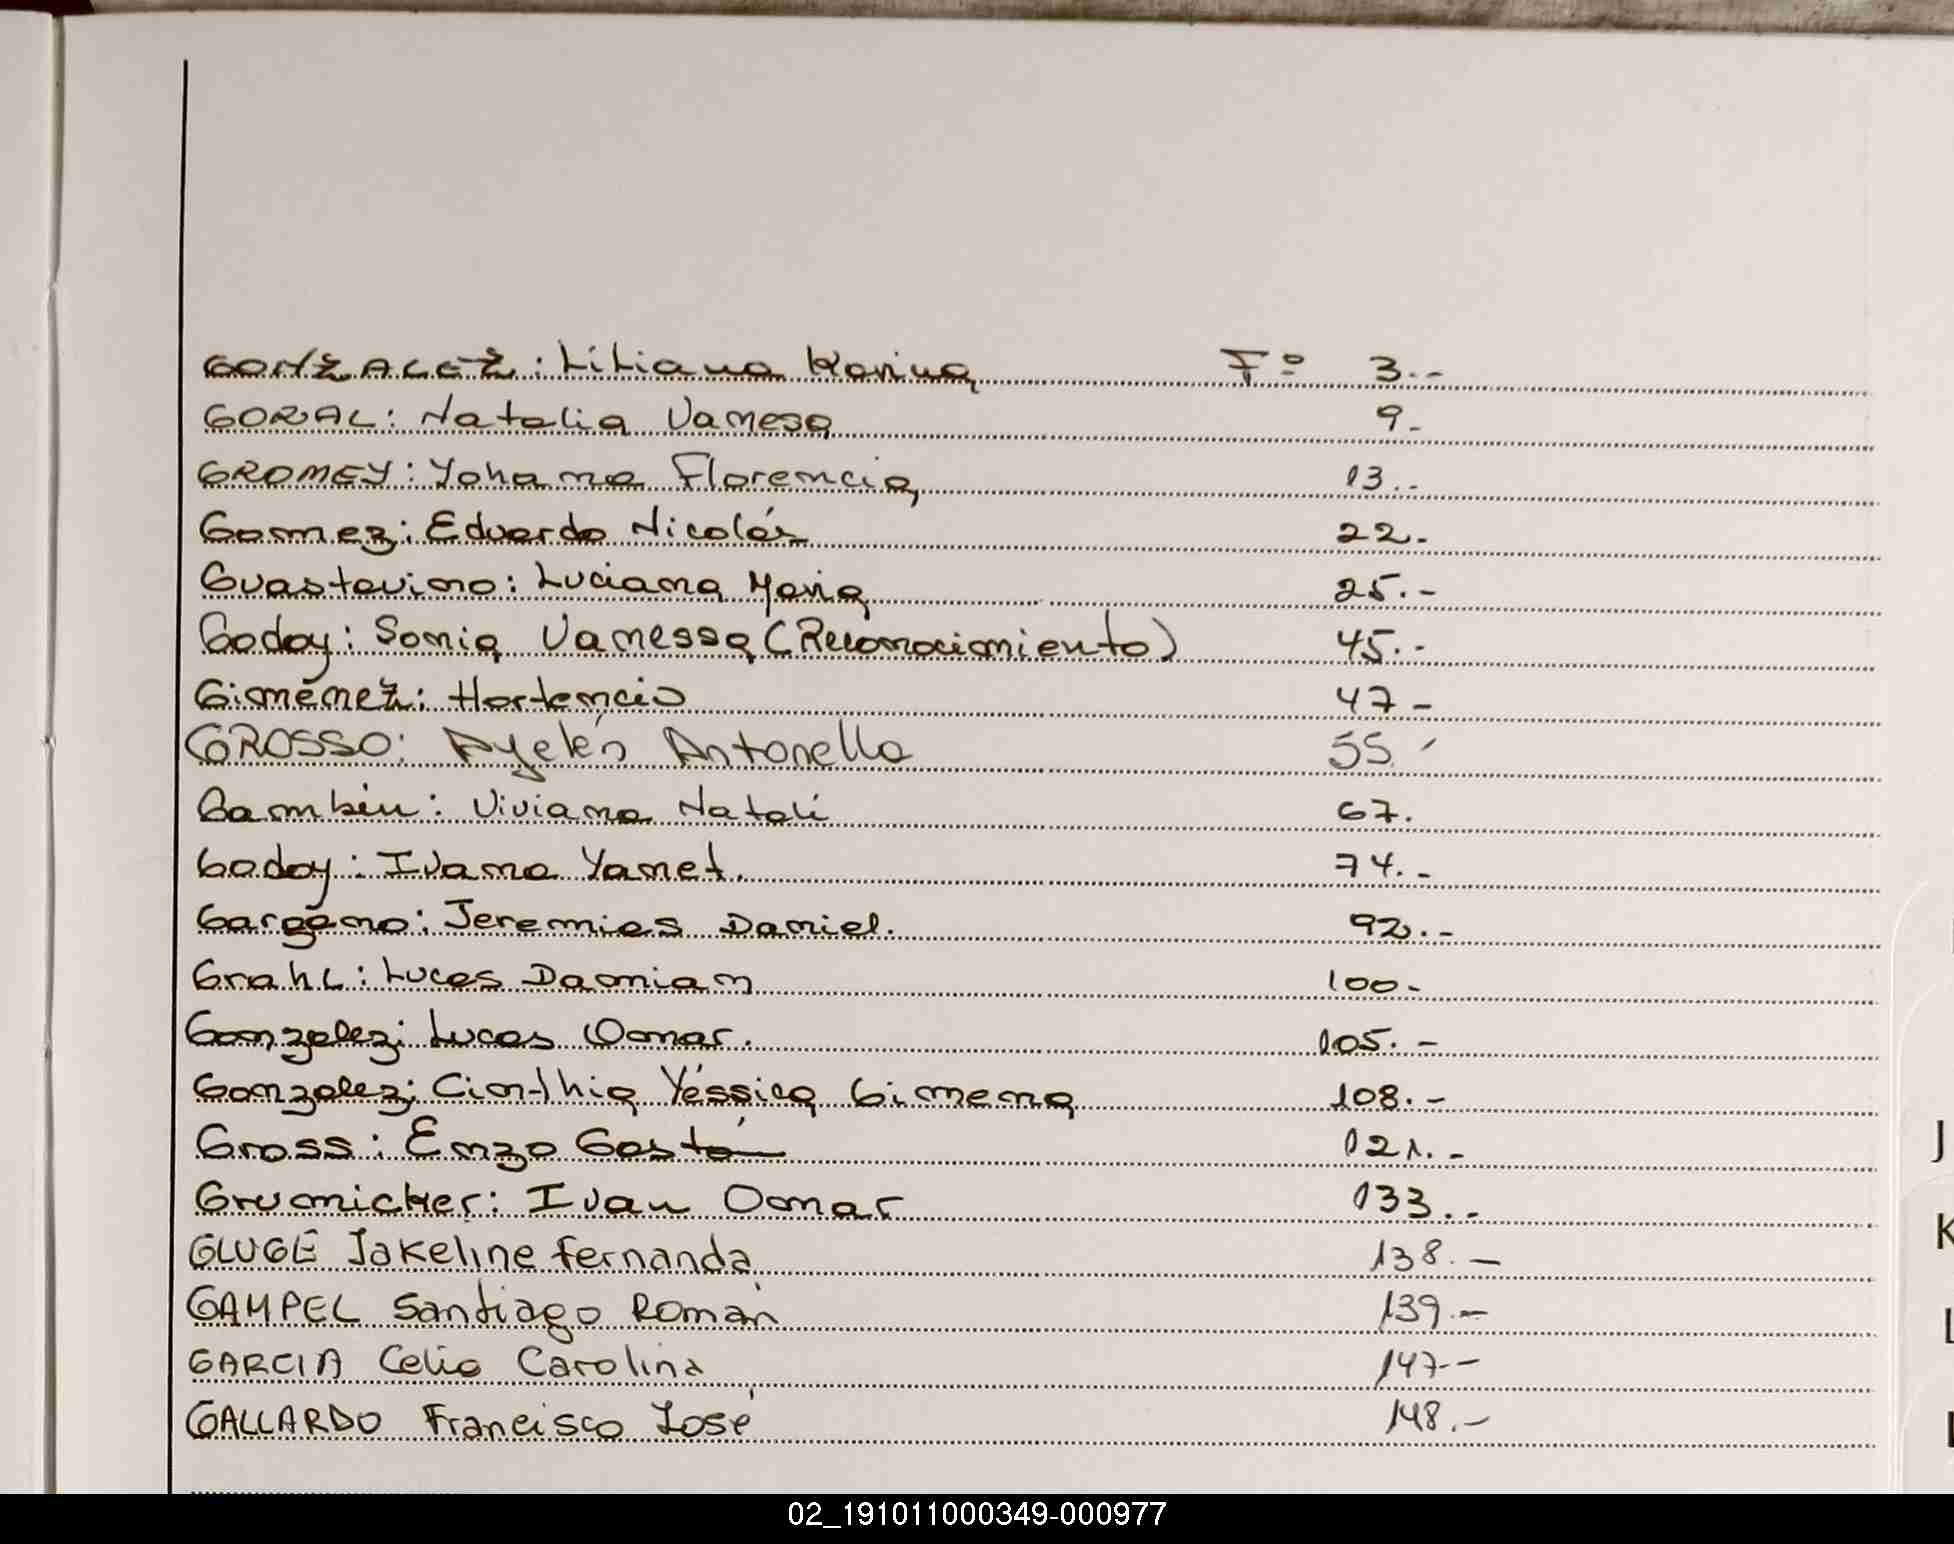 GONZALEZ: Liliana Karina F° 3.--
GORAL: Natalia Vanesa 9.-
GROMEY: Yohana Florencia 13.--
Gomez: Eduardo Nicolás 22.-
Guastavino: Luciana María 25.--
Godoy: Sonia Vanessa (Reconocimiento) 45.--
Giménez: Hortencia 47-
GROSSO: Ayelén Antonella 55.-
Gambin: Viviana Natalí 67.
Godoy: Ivana Yanet. 74.-
Gargano: Jeremías Daniel. 92.--
Grahl: Lucas Damian 100.-
Gonzalez: Lucas Omar. 105.-
Gonzalez: Cinthia Yéssica Gimena 108.--
Gross: Enzo Gastón 121.--
Grumicker: Ivan Omar 133.--
GLUGE Jakeline Fernanda 138.-
GAMPEL Santiago Román 139.--
GARCIA Celia Carolina 147.--
GALLARDO Francisco José 148.-
J
K
L
02_191011000349-000977